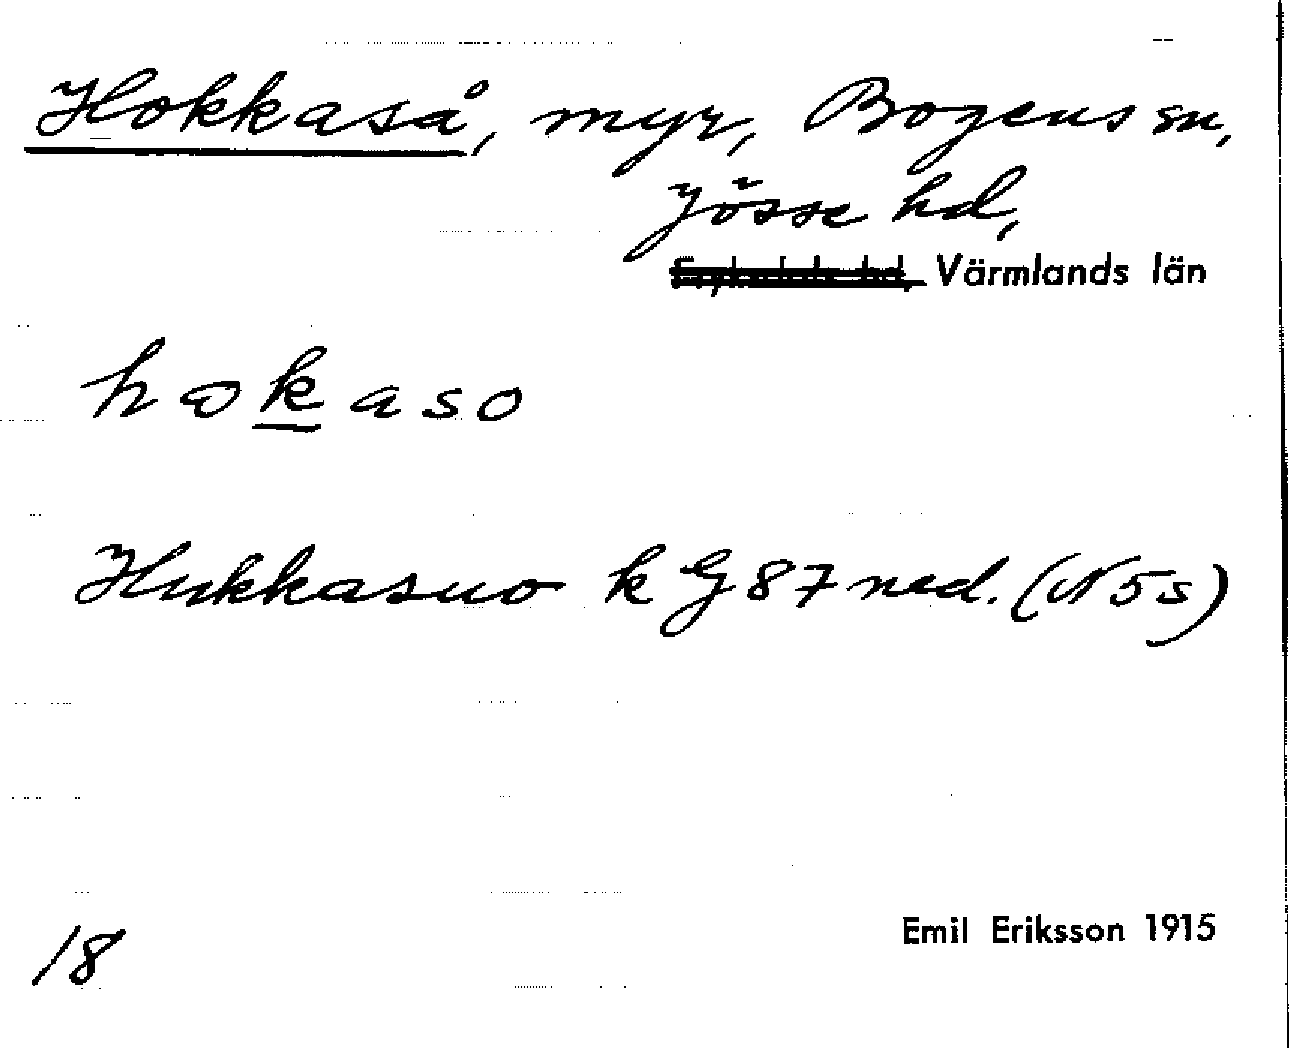 Hokkaså, myr, Bogens sn,
Jösse hd,
Fryksdals hd, Värmlands län
hokaso
Hukkasuo k G 87 ned. (N 5 s)
18
Emil Eriksson 1915